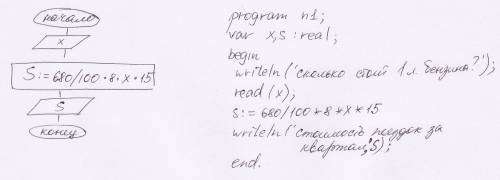 начало
x
S:=680/100·8·x·15
S
конец
program n1;
var x,s:real;
begin
writeln('сколько стоит 1л. бензина?');
read(x);
s:=680/100*8*x*15
writeln('стоимость поездок за
квартал',S);
end.